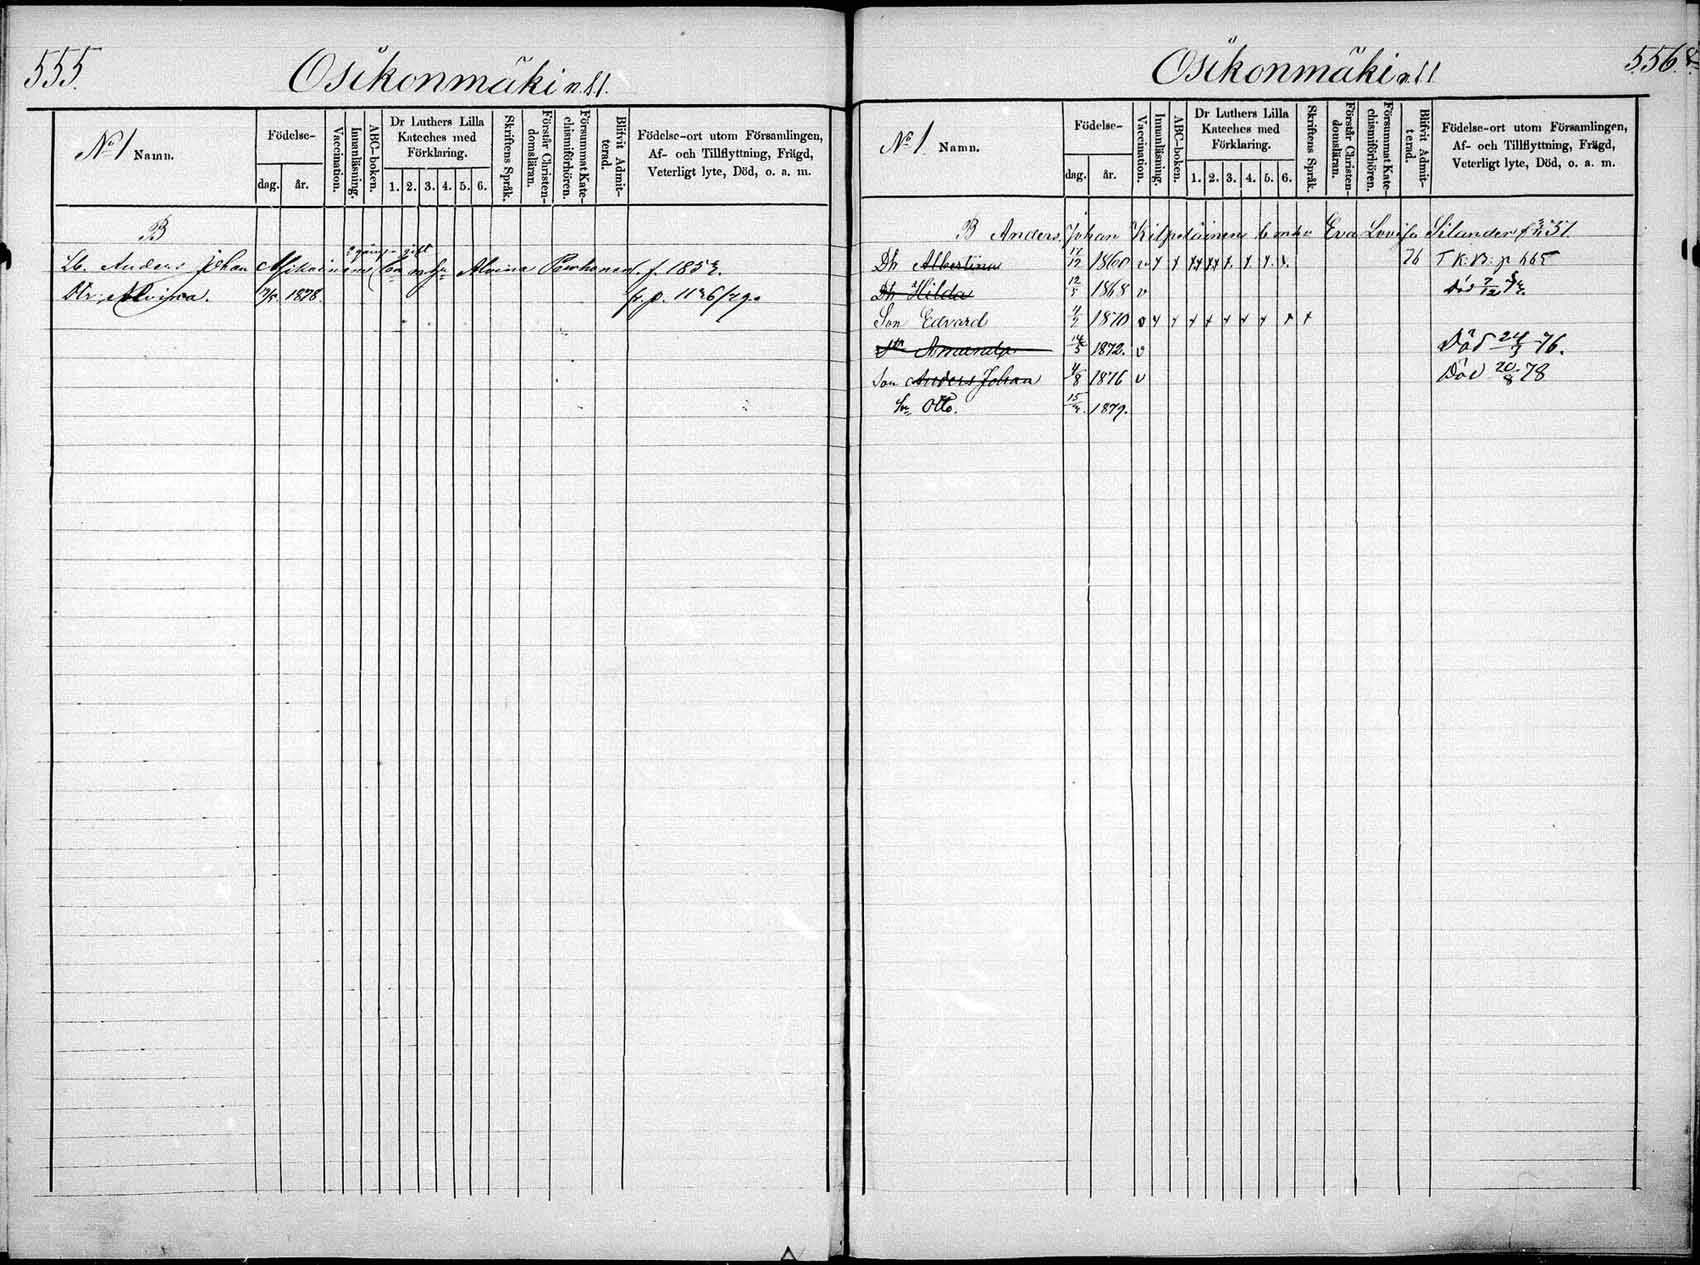 555.
Osikonmäki
No 1 Namn.
Födelse-
dag.
år.
Vaccination.
Innanläsning.
ABC-boken.
Dr Luthers Lilla
Kateches med
Förklaring.
1. 2. 3. 4. 5. 6.
Skriftens Språk.
Förstår Christen-
domsläran.
Försummat Kate-
chismiförhören.
Blifvit Admit-
terad.
Födelse-ort utom Församlingen,
Af- och Tillflyttning, Frägd,
Veterligt lyte, Död, o. a. m.
B
gift
Anders Johan Alvina f. 185
1878.
Osikonmäki
556.
No 1. Namn.
Födelse-
dag.
år.
Vaccination.
Innanläsning.
ABC-boken.
Dr Luthers Lilla
Kateches med
Förklaring.
1. 2. 3. 4. 5. 6.
Skriftens Språk.
Förstår Christen-
domsläran.
Försummat Kate-
chismiförhören.
Blifvit Admit-
terad.
Födelse-ort utom Församlingen,
Af- och Tillflyttning, Frägd,
Veterligt lyte, Död, o. a. m.
B Anders Johan Kilpeläinens Enka Eva Lovisa Silander
Dr Albertina 1860 v x x xx xx x. x x. x. 76
Dr Hilda 12/5 1868 v Död
Son Edvard 1870 v x x x x x x x x x
Dr Amanda 14/5 1872. v Död 76.
Son Anders Johan 4/8 1876 v Död 20/8 78
Sn Otto. 1879.